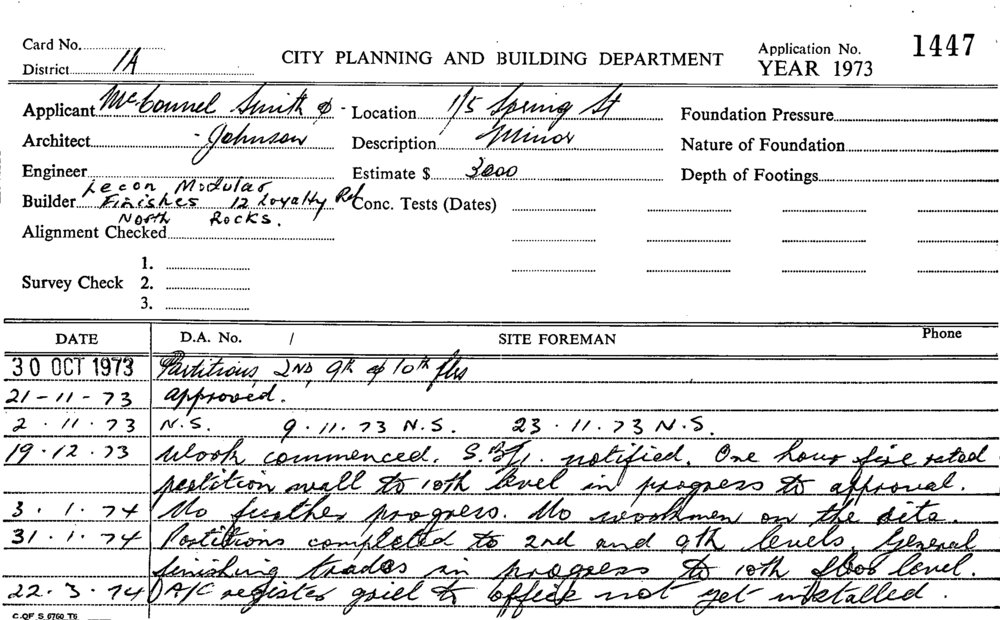 Card No.
District 1A
CITY PLANNING AND BUILDING DEPARTMENT
Application No. 1447
YEAR 1973
Applicant McConnel Smith &
Architect - Johnson
Engineer
Builder Lecon Modular
Finishes 12 Loyalty Rd
North Rocks.
Alignment Checked
Location 1/5 Spring St
Description Minor
Estimate $ 3000
Conc. Tests (Dates)
Foundation Pressure
Nature of Foundation
Depth of Footings
Survey Check
1.
2.
3.
DATE D.A. No. / SITE FOREMAN Phone
30 OCT 1973 Partitions, 2ND, 9th & 10th flrs
21-11-73 approved.
2.11.73 N.S. 9.11.73 N.S. 23.11.73 N.S.
19.12.73 Work commenced. notified. One hour fire rated
partition wall to 10th level in progress to approval.
3.1.74 No further progress. No workmen on the site.
31.1.74 Partitions completed to 2nd and 9th levels. General
finishing trades in progress to 10th floor level.
22.3.74 A/C register griel to office not yet installed.
C.OF S 6760 T6